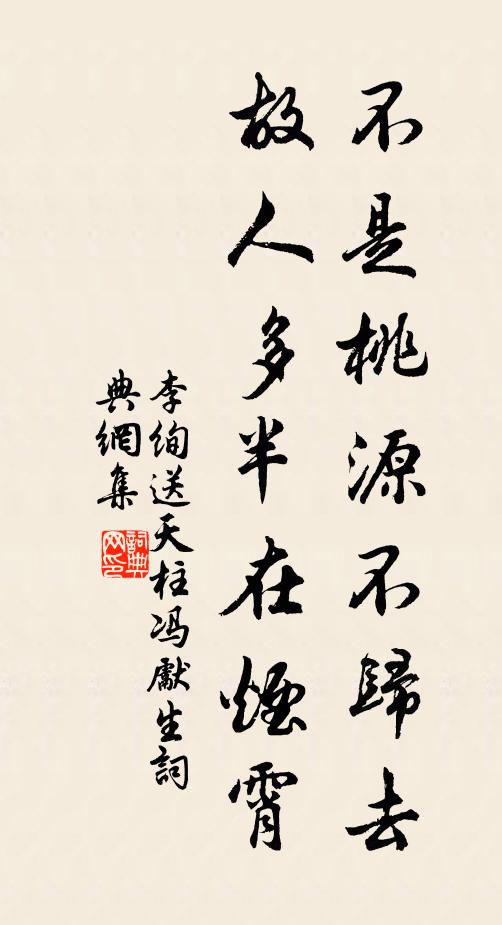 不是桃源不歸去
故人多半在煙霄
李絢送天柱冯獻生詞
典網集
詞典网印